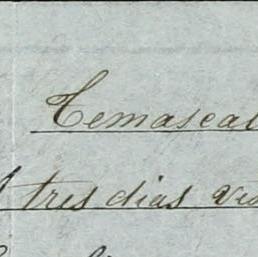 Temascal
tres dias vis